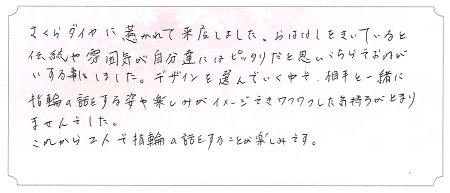 さくらダイヤに惹かれて来店しました。おはなしをきいていると
伝統や雰囲気が自分達にはピッタリだと思いこちらでおねが
いする事にしました。デザインを選んでいく中で、相手と一緒に
指輪の話をする姿や楽しみがイメージできワクワクした気持ちがとまり
ませんでした。
これから2人で指輪の話をすることが楽しみです。